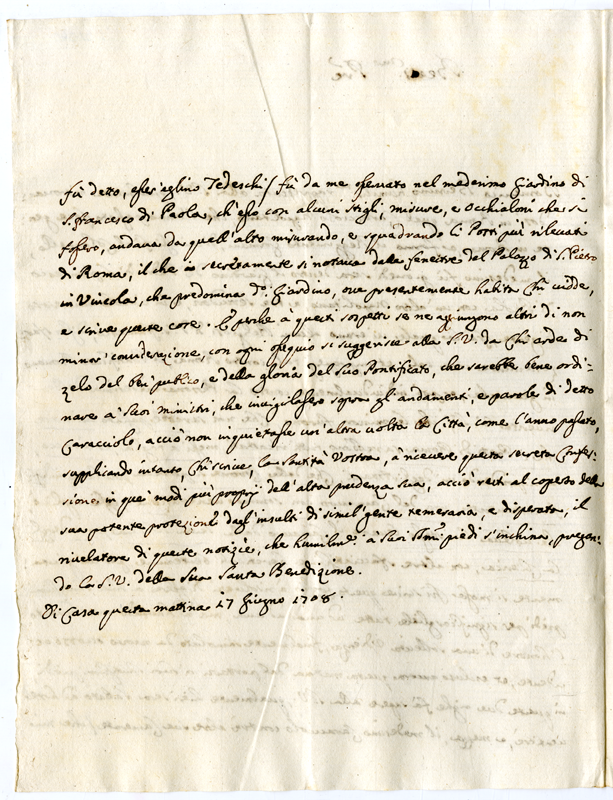 fù detto, esser'eglino Tedeschi / fù da me osservato nel medesimo Giardino di
S. Francesco di Paola, ch'esso con alcuni stigli, misure, e occhialoni che si
fossero, andava da quell'alto misurando, e squadrando li Posti più rilevati
di Roma, il che secretamente si notava dalle fenestre del Palazzo di S. Pietro
in Vincola, che predomina do. Giardino, ove presentemente habita Chi vidde,
e scrive queste cose. E perche à questi sospetti se ne aggiungono altri di non
minor' considerazione, con ogni ossequio si suggerisce alla S.V. da Chi arde di
zelo del ben publico, e della gloria del suo Pontificato, che sarebbe bene ordi-
nare a' Suoi ministri, che invigilassero sopra gl'andamenti, e parole di detto
Caracciolo, acciò non inquietasse un'altra volta la Città, come l'anno passato,
supplicando intanto, Chi scrive, la Santità Vostra, à ricevere questa secreta Confes-
sione, in quei modi più proprij dell'alta prudenza sua, acciò resti al coperto della
sua potente protezione dagl'insulti di simil gente temeraria, e disperata, il
rivelatore di queste notizie, che humilme. a' Suoi SSmi. piedi s'inchina, pregan-
do la S.V. della Sua Santa Benedizione.
Di Casa questa mattina 17 Giugno 1708.